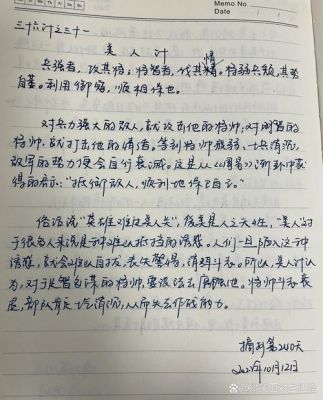 Memo No.
Date
三十六计之三十一
美人计
兵强者,攻其将;将智者,伐其情。将弱兵颓,其势
自萎。利用御寇,顺相保也。
对兵力强大的敌人,就攻击他的将帅;对明智的
将帅,就打击他的情绪。等到将帅疲弱,士兵消沉,
敌军的势力便会自行衰减。这是从《周易》渐卦中获
得的启示:“抵御敌人,顺利地保卫自己。”
俗语说“英雄难过美人关”,爱美是人之天性,“美人”对
于很多人来说是种难以抵挡的诱惑。人们一旦陷入这种
诱惑,就会难以自拔,丧失警惕,消弭斗志。所以,美人计认
为,对于足智多谋的将帅,要设法去腐蚀他,将帅斗志衰
退,部队肯定士气消沉,从而失去作战能力。
摘抄第240天
10月12日